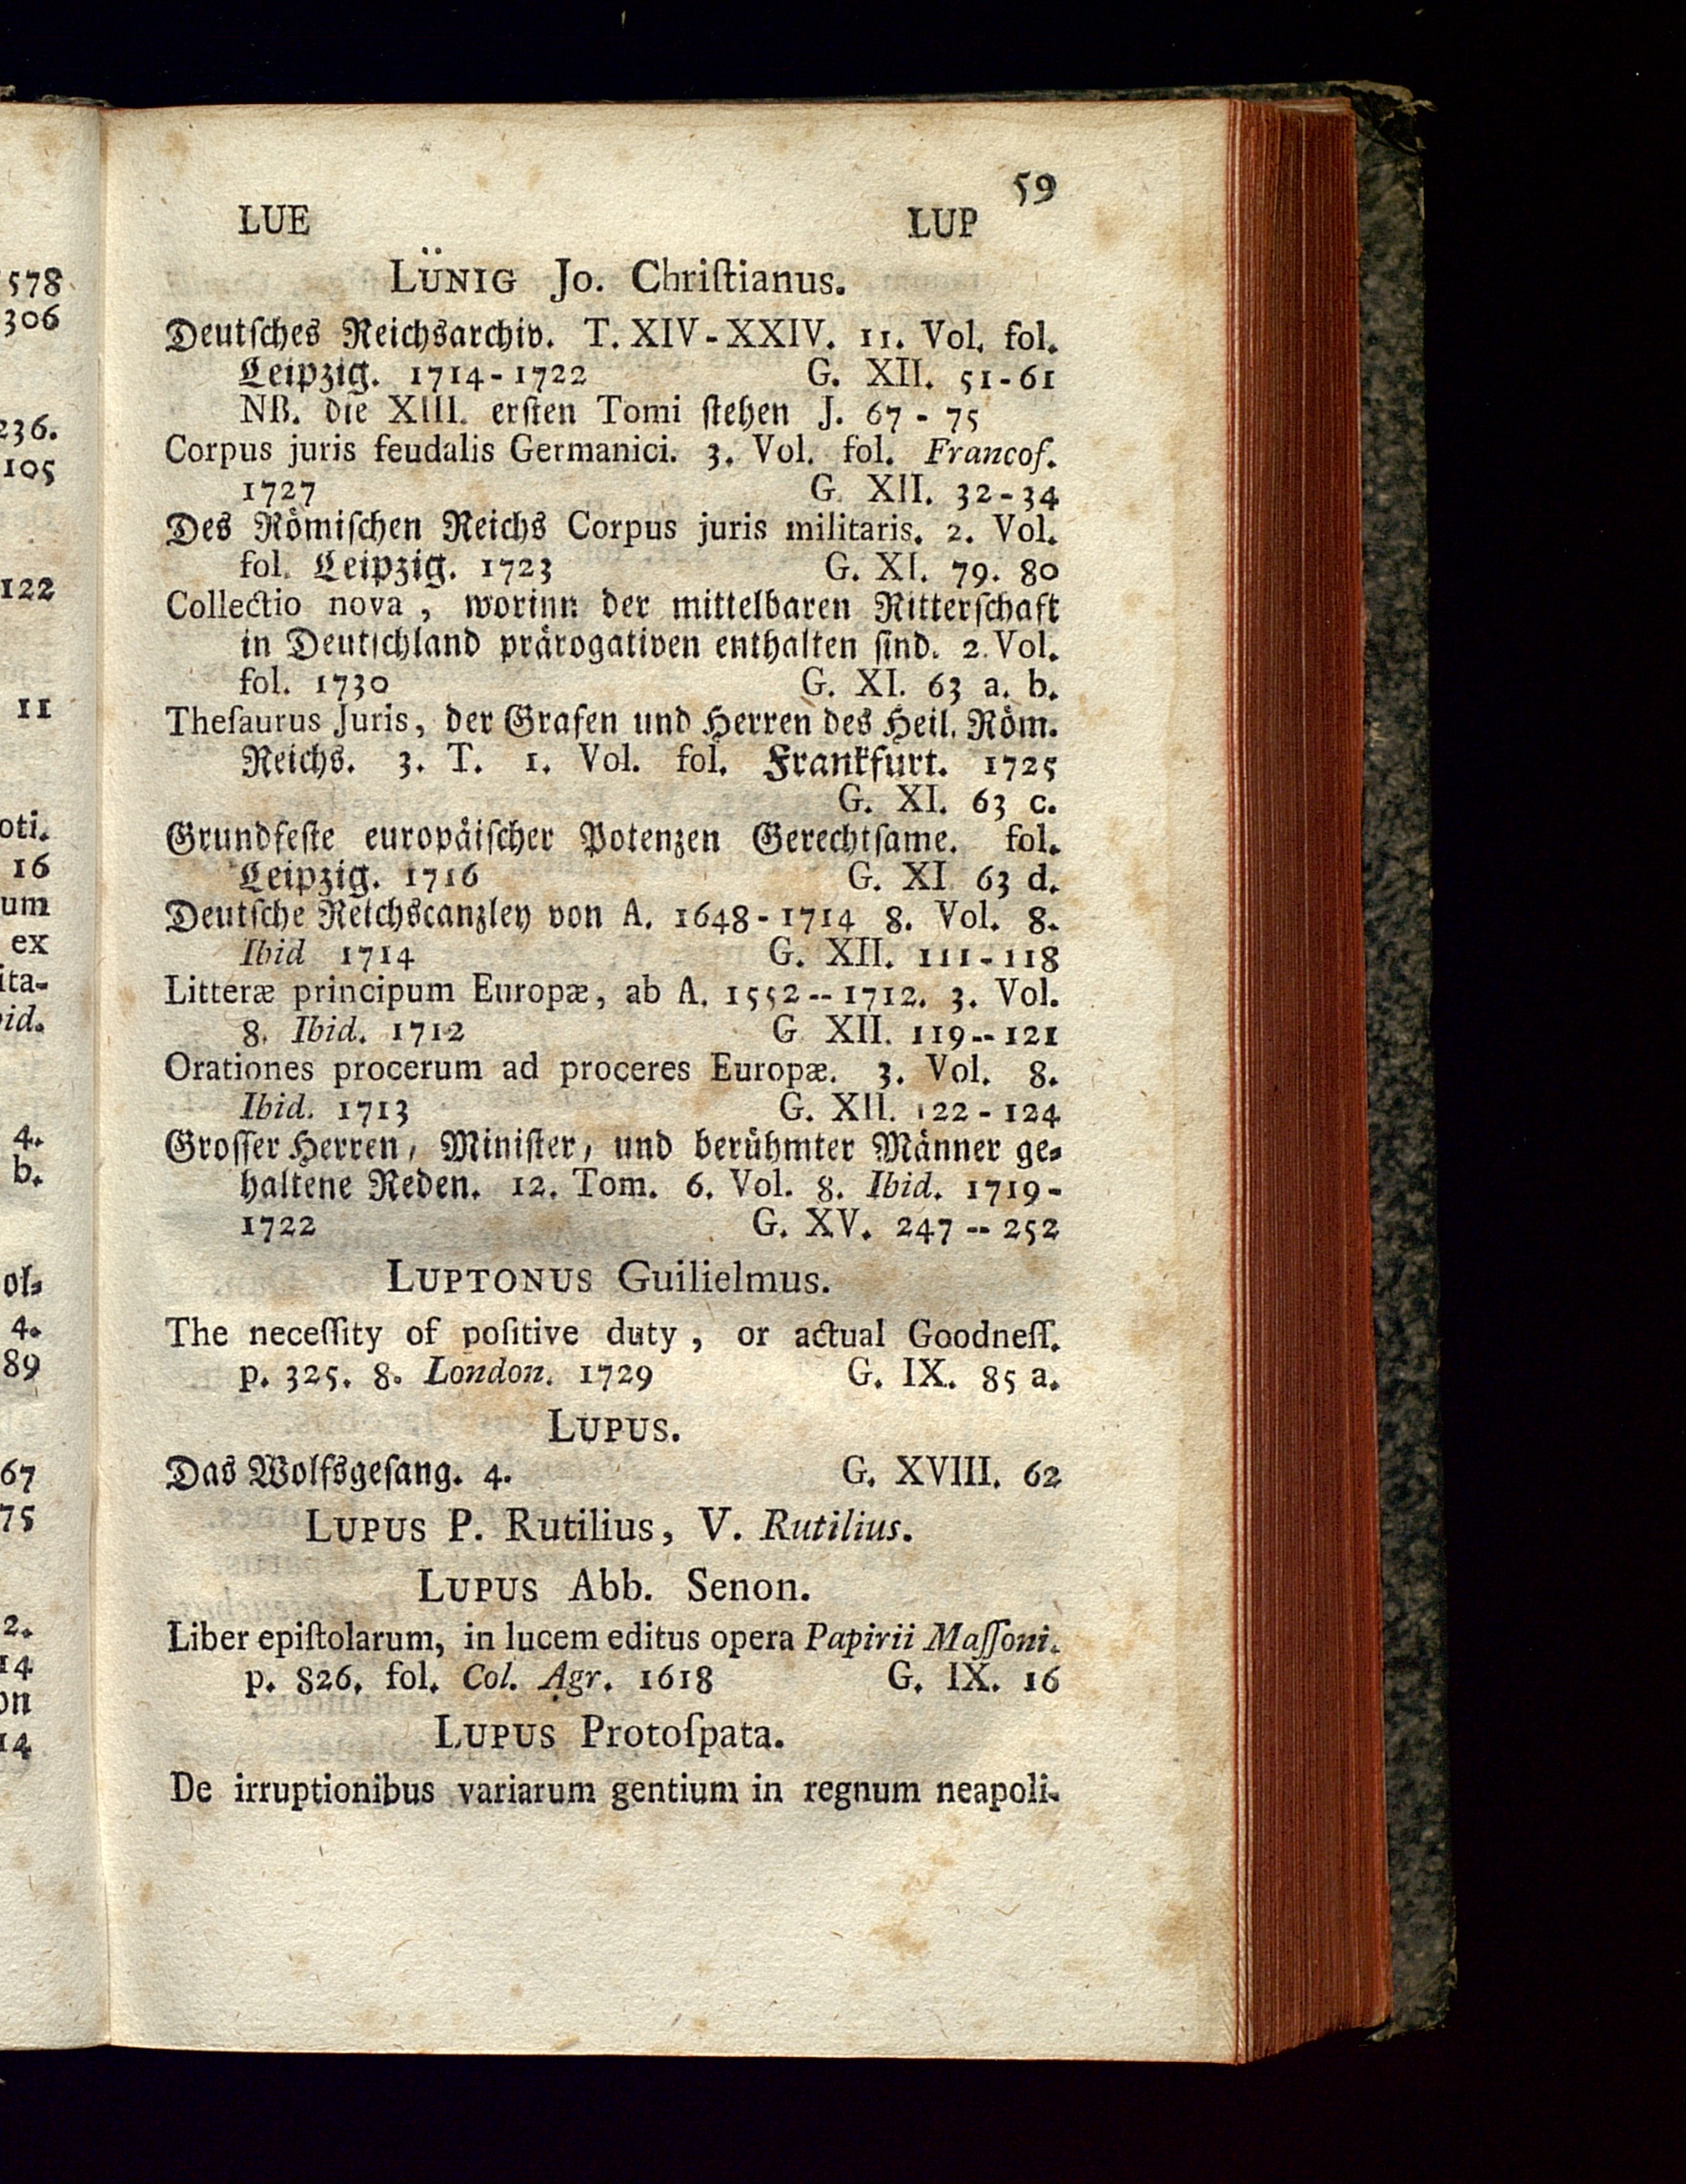 578
306
236.
105
122
11
oti.
16
um
ex
ita-
id.
4.
b.
ol-
4.
89
67
75
2.
14
on
14
59
LUE LUP
LÜNIG Jo. Chriſtianus.
Deutſches Reichsarchiv. T. XIV-XXIV. 11. Vol. fol.
Leipzig. 1714-1722 G. XII. 51-61
NB. die XIII. erſten Tomi ſtehen J. 67 - 75
Corpus juris feudalis Germanici. 3. Vol. fol. Francof.
1727 G. XII. 32-34
Des Römiſchen Reichs Corpus juris militaris. 2. Vol.
fol. Leipzig. 1723 G. XI. 79. 80
Collectio nova , worinn der mittelbaren Ritterſchaft
in Deutſchland prärogativen enthalten ſind. 2. Vol.
fol. 1730 G. XI. 63 a. b.
Theſaurus Juris, der Grafen und Herren des Heil. Röm.
Reichs. 3. T. 1. Vol. fol. Frankfurt. 1725
G. XI. 63 c.
Grundfeſte europäiſcher Potenzen Gerechtſame. fol.
Leipzig. 1716 G. XI 63 d.
Deutſche Reichscanzley von A. 1648-1714 8. Vol. 8.
Ibid 1714 G. XII. 111-118
Litteræ principum Europæ, ab A. 1552--1712. 3. Vol.
8. Ibid. 1712 G XII. 119--121
Orationes procerum ad proceres Europæ. 3. Vol. 8.
Ibid. 1713 G. XII. 122-124
Groſſer Herren, Miniſter, und berühmter Männer ge-
haltene Reden. 12. Tom. 6. Vol. 8. Ibid. 1719-
1722 G. XV. 247 -- 252
LUPTONUS Guilielmus.
The neceſſity of poſitive duty , or actual Goodneſſ.
p. 325. 8. London. 1729 G. IX. 85 a.
LUPUS.
Das Wolfsgeſang. 4. G. XVIII. 62
LUPUS P. Rutilius, V. Rutilius.
LUPUS Abb. Senon.
Liber epiſtolarum, in lucem editus opera Papirii Maſſoni.
p. 826. fol. Col. Agr. 1618 G. IX. 16
LUPUS Protoſpata.
De irruptionibus variarum gentium in regnum neapoli-